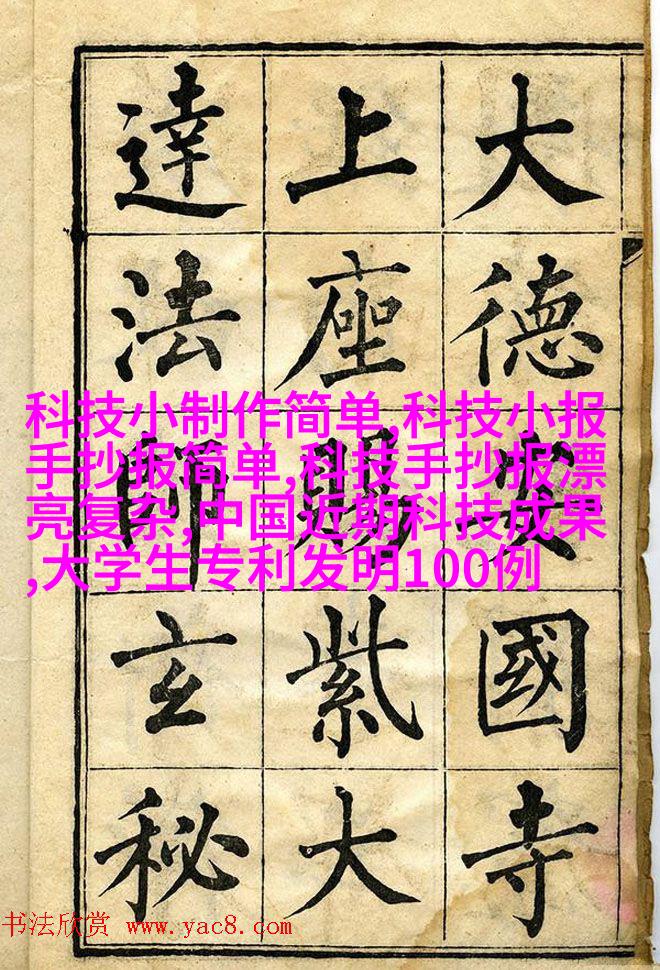 大德安國寺
上座賜紫大
達法師玄秘
科技小制作简单,科技小报
手抄报简单,科技手抄报漂
亮复杂,中国近期科技成果
,大学生专利发明100例
书法欣赏 www.yac8.com